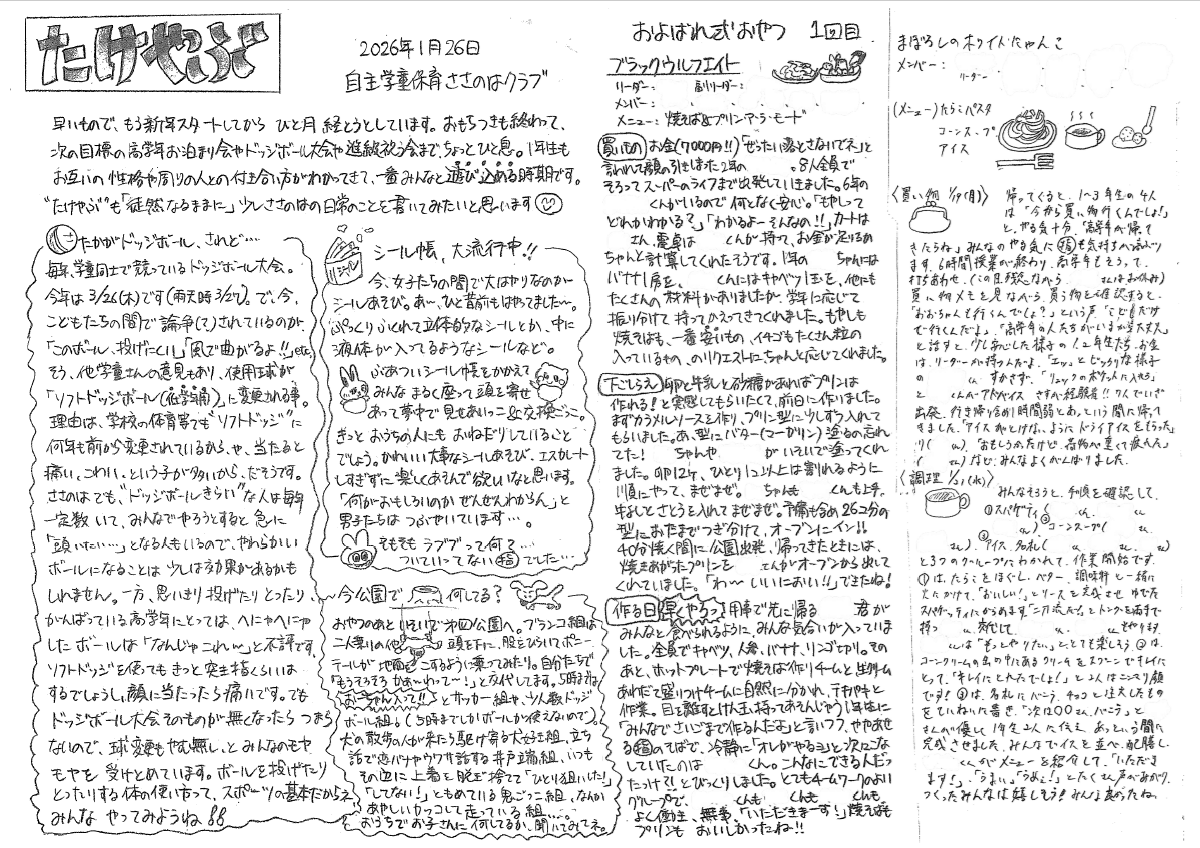 たけやぶ
2026年1月26日
自主学童保育ささのはクラブ
早いもので、もう新年スタートしてから ひと月 経とうとしています。おもちつきも終わって、
次の目標の高学年お泊まり会やドッジボール大会や進級祝う会まで、ちょっとひと息。1年生も
お互いの性格や周りの人との付き合い方がわかってきて、一番みんなと遊び込める時期です。
"たけやぶ"も「徒然なるままに」少しささのはの日常のことを書いてみたいと思います
たかがドッジボール、されど…
毎年、学童同士で競っているドッジボール大会。
今年は3/26(木)です(雨天時3/27)。で、今、
こどもたちの間で論争(?)されているのが、
「このボール、投げにくい」「風で曲がるよ!!」etc.
そう、他学童さんの意見もあり、使用球が
「ソフトドッジボール(低学年用)」に変更される事。
理由は、学校の体育等でも"ソフトドッジ"に
何年も前から変更されているから、や、当たると
痛い、こわい、という子が多いから、だそうです。
ささのはでも、"ドッジボールきらい"な人は毎年
一定数いて、みんなでやろうとすると急に
「頭いたい…」となる人もいるので、やわらかい
ボールになることは少しは効果があるかも
しれません。一方、思いきり投げたりとったり、
がんばっている高学年にとっては、へにゃへにゃ
したボールは「なんじゃこれ〜」と不評です。
ソフトドッジを使ってもきっと突き指くらいは
するでしょうし、顔に当たったら痛いです。でも
ドッジボール大会そのものが無くなったらつまら
ないので、球変更もやむ無し、とみんなのモヤ
モヤを受けとめています。ボールを投げたり
とったりする体の使い方って、スポーツの基本だからネ
みんな やってみようね!!
シール
シール帳、大流行中!!
今、女子たちの間で大はやりなのが
シールあそび。あ〜、ひと昔前もはやってました〜。
ぷっくりふくれて立体的なシールとか、中に
液体が入ってるようなシールなど。
ぶあついシール帳をかかえて
みんなまるく座って頭を寄せ
あって夢中で見せあいっこ&交換っこ。
きっとおうちの人にもおねだりしていること
でしょう。かわいい大事なシールあそび、エスカレート
しすぎずに楽しくあそんで欲しいなと思います。
「何がおもしろいのかぜんぜんわからん」と
男子たちはつぶやいています…。
そもそもラブブって何?…
ついていってない指でした…
今公園で 何してる?
おやつのあと いそいで第四公園へ。ブランコ組は
二人乗りの他 頭を下に、股をひらいてポニー
テールが地面 こするように乗ってみたり。自分たちで
「もうそろそろかぁ〜わって〜!」と交代してます。5時まね
おーちゃん入って!!とサッカー組や、少人数ドッジ
ボール組も(5時までしかボールが使えないので)。
犬の散歩の人が来たら駆け寄る犬好き組、立ち
話で恋バナやウワサ話する井戸端組、いつも
その辺に上着を脱ぎ捨てて「ひとり狙いした!」
「してない!」ともめている鬼ごっこ組、なんか
あやしいカッコして走っている組…。
おうちでお子さんに何してるか、聞いてみてネ。
およばれ式おやつ 1回目
ブラックウルフエイト
リーダー: 副リーダー:
メンバー:
メニュー: 焼そば&プリン・ア・ラ・モード
買いもの お金(7000円!!)「ぜったい落とさないでネ」と
言われて顔の引きしまった2年の 。8人全員で
そろってスーパーのライフまで出発していきました。6年の
くんがいるので 何となく安心。「もやしって
どれかわかる?」「わかるよーそんなの!!」カートは
さん、電卓は くんが持って、お金が足りるか
ちゃんと計算してくれたそうです。1年の ちゃんには
バナナ1房を、 くんにはキャベツ1玉を、他にも
たくさんの材料がありましたが、学年に応じて
振り分けて持ってかえってきてくれました。もやしも
焼そばも、一番安いもの、イチゴもたくさん粒の
入っているもの、のリクエストにちゃんと応じてくれました。
下ごしらえ 卵と牛乳と砂糖があればプリンは
作れる!と実感してもらいたくて、前日に作りました。
まずカラメルソースを作り、プリン型に少しずつ入れて
もらいました。あ、型にバター(マーガリン)塗るの忘れ
てた! ちゃんや がいそいで塗ってくれ
ました。卵12ヶ、ひとりに1コ以上は割れるように
順にやって、まぜまぜ。 ちゃんも くんも上手。
牛乳とさとうを入れてまぜまぜ。予備も含め26コ分の
型におたまでつぎ分けて、オーブンにイン!!
40分焼く間に公園出発、帰ってきたときには、
焼きあがったプリンを さんがオーブンから出して
くれていました。「わ〜いいにおい!!」できたね!
作る日 早くやろっ! 用事で先に帰る 君が
みんなと食べられるように、みんな気合いが入っていま
した。全員でキャベツ、人参、バナナ、リンゴ切り。その
あと、ホットプレートで焼そば作りチームと生クリーム
あわだて盛りつけチームに自然に分かれ、テキパキと
作業。目を離すとけん玉持ってあそんじゃう1年生に
「みんなでさいごまで作るんだよ」と言いつつ、ややあせ
る指のそばで、冷静に「オレがやるヨ」と次々こな
していたのは くん。こんなにできる人だっ
たっけ?!とびっくりしました。とてもチームワークのよい
グループで、 くんも くんも くんも
よく働き、無事、「いただきまーす!」焼そばも
プリンも おいしかったね!!
まぼろしのホワイトにゃんこ
メンバー:
リーダー
(メニュー)たらこパスタ
コーンスープ
アイス
〈買い物 1/19(月)〉
帰ってくると、1〜3年生の4人
は「今から買い物行くんでしょ!」
と、やる気十分。「高学年が帰って
きたらね」みんなのやる気に指も気持ちが
ます。6時間授業が終わり、高学年もそろって、
打ちあわせ。(この日残念ながら さんはお休み)
買い物メモを見ながら、買う物を確認すると、
「おおちゃんも行くんでしょ?」という声。「こどもだけ
で行くんだよ」「高学年の人たちがいるから大丈夫」
と話すと、少し安心した様子の1、2年生たち。お金
は、リーダーが持つんだよ。「エッ」とビックリな様子
の 。すかさず、「リュックのポケットに入れたら」
と くんがアドバイス さすが経験者!!7人でいざ
出発。行き帰り含め1時間弱とあっという間に帰って
きました。「アイスがとけないようにドライアイスをもらった」
り( )「おもしろかったけど、荷物が重くて疲れた」
( )など、みんなよくがんばりました。
〈調理 1/21(水)〉
みんなそろうと、手順を確認して、
①スパゲティ(
②コーンスープ(
③アイス、名札(
と3つのグループにわかれて、作業開始です。
①は、たらこをほぐし、バター、調味料と一緒に